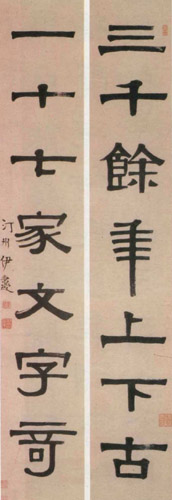 三千餘年上下古
一十七家文字竒
汀州伊